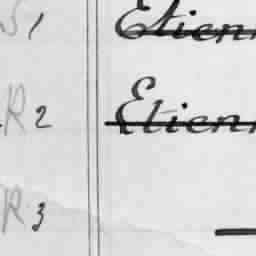 1 Etien
R 2 Etien
R 3